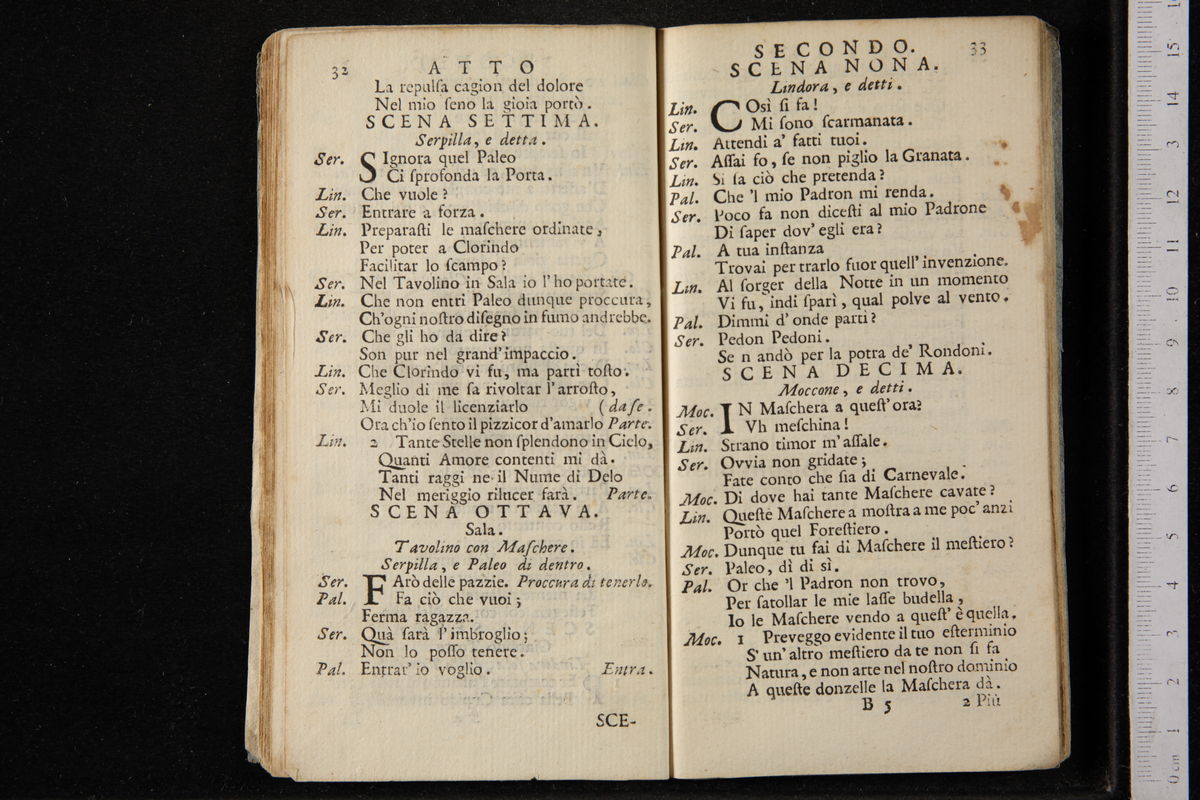 32 ATTO
La repulſa cagion del dolore
Nel mio ſeno la gioia portò.
SCENA SETTIMA.
Serpilla, e detta.
Ser. SIgnora quel Paleo
Ci ſprofonda la Porta.
Lin. Che vuole?
Ser. Entrare a forza.
Lin. Preparaſti le maſchere ordinate,
Per poter a Clorindo
Facilitar lo ſcampo?
Ser. Nel Tavolino in Sala io l'ho portate.
Lin. Che non entri Paleo dunque proccura,
Ch'ogni noſtro diſegno in fumo andrebbe.
Ser. Che gli ho da dire?
Son pur nel grand'impaccio.
Lin. Che Clorindo vi fu, ma partì toſto.
Ser. Meglio di me ſa rivoltar l'arroſto,
Mi duole il licenziarlo (da ſe.
Ora ch'io ſento il pizzicor d'amarlo Parte.
Lin. 2 Tante Stelle non ſplendono in Cielo,
Quanti Amore contenti mi dà.
Tanti raggi ne il Nume di Delo
Nel meriggio rilucer farà. Parte.
SCENA OTTAVA.
Sala.
Tavolino con Maſchere.
Serpilla, e Paleo di dentro.
Ser. FArò delle pazzie. Proccura di tenerlo.
Pal. Fa ciò che vuoi;
Ferma ragazza.
Ser. Quà ſarà l'imbroglio;
Non lo poſſo tenere.
Pal. Entrar' io voglio. Entra.
SCE-
SECONDO. 33
SCENA NONA.
Lindora, e detti.
Lin. COsì ſi fa!
Ser. Mi ſono ſcarmanata.
Lin. Attendi a' fatti tuoi.
Ser. Aſſai fo, ſe non piglio la Granata.
Lin. Si ſa ciò che pretenda?
Pal. Che 'l mio Padron mi renda.
Ser. Poco fa non diceſti al mio Padrone
Di ſaper dov' egli era?
Pal. A tua inſtanza
Trovai per trarlo fuor quell' invenzione.
Lin. Al ſorger della Notte in un momento
Vi fu, indi ſparì, qual polve al vento.
Pal. Dimmi d' onde partì?
Ser. Pedon Pedoni.
Se n andò per la potra de' Rondoni.
SCENA DECIMA.
Moccone, e detti.
Moc. IN Maſchera a queſt' ora?
Ser. Vh meſchina!
Lin. Strano timor m' aſſale.
Ser. Ovvia non gridate;
Fate conto che ſia di Carnevale.
Moc. Di dove hai tante Maſchere cavate?
Lin. Queſte Maſchere a moſtra a me poc' anzi
Portò quel Foreſtiero.
Moc. Dunque tu fai di Maſchere il meſtiero?
Ser. Paleo, dì di sì.
Pal. Or che 'l Padron non trovo,
Per ſatollar le mie laſſe budella,
Io le Maſchere vendo a queſt' è quella.
Moc. 1 Preveggo evidente il tuo eſterminio
S' un' altro meſtiero da te non ſi fa
Natura, e non arte nel noſtro dominio
A queſte donzelle la Maſchera dà.
B 5 2 Più